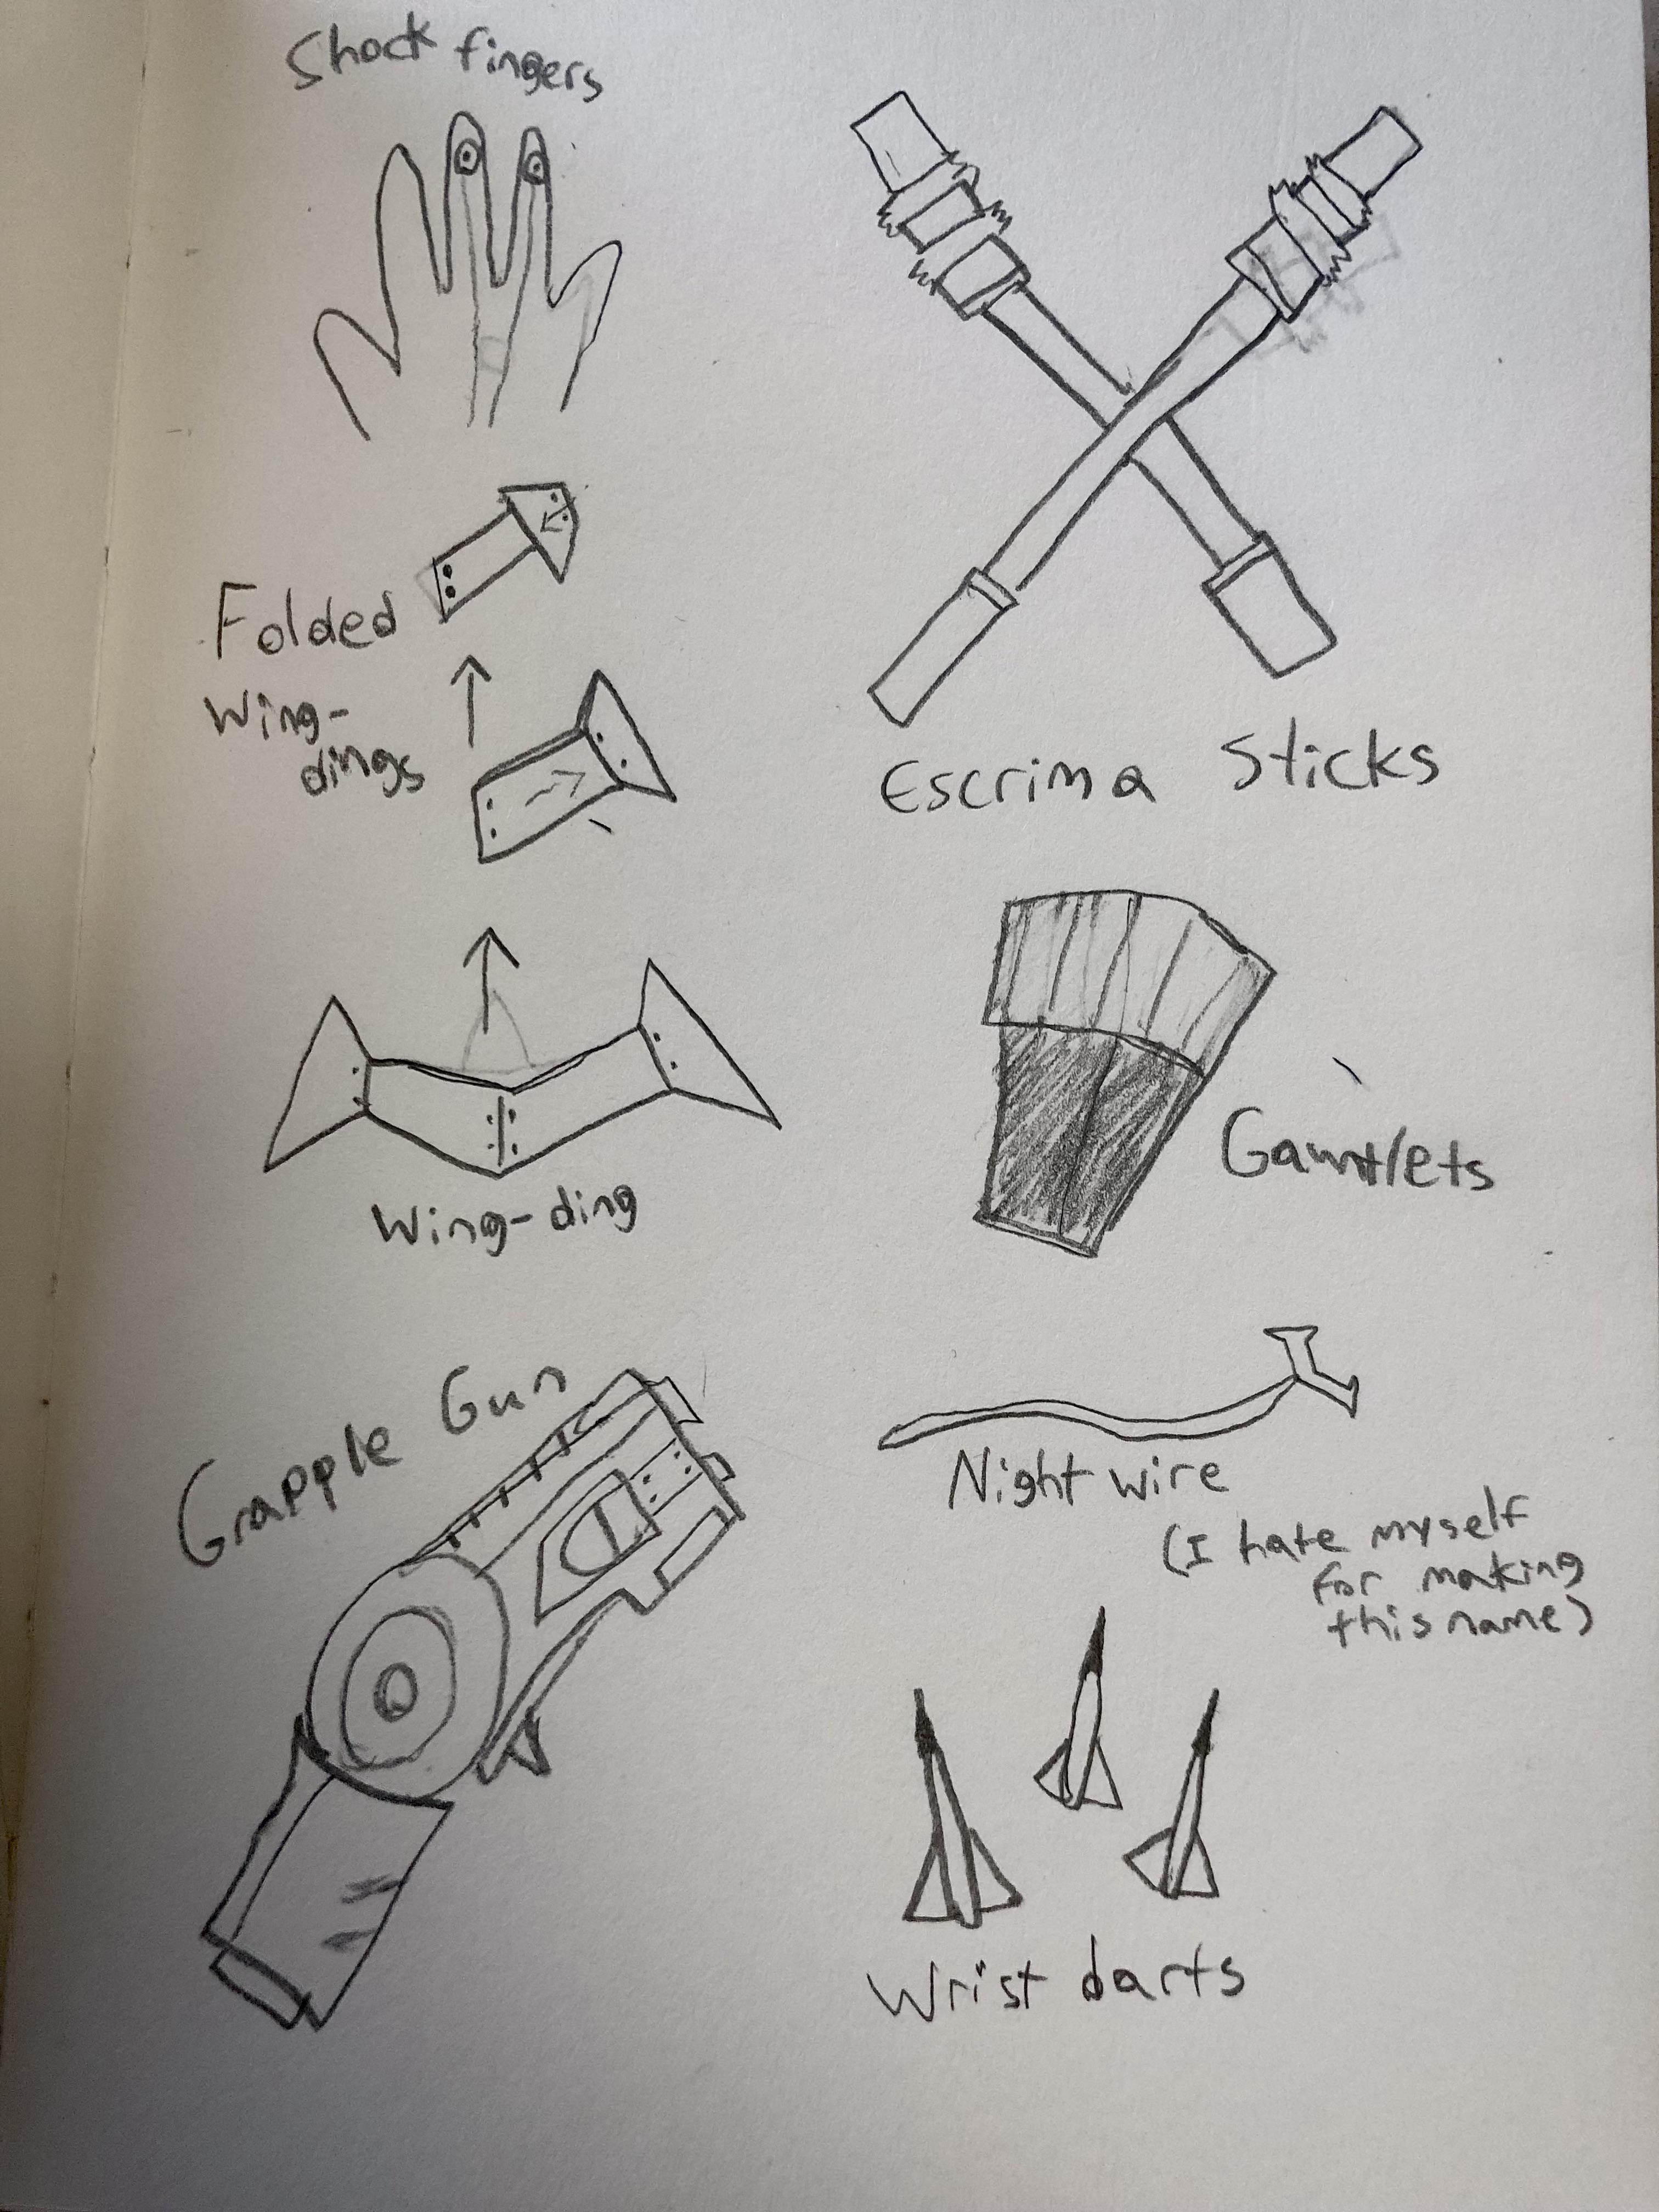 Shock fingers
Folded
Wing-
dings
Escrima Sticks
Wing-ding
Gauntlets
Grapple Gun
Night wire
(I hate myself
for making
this name)
Wrist darts